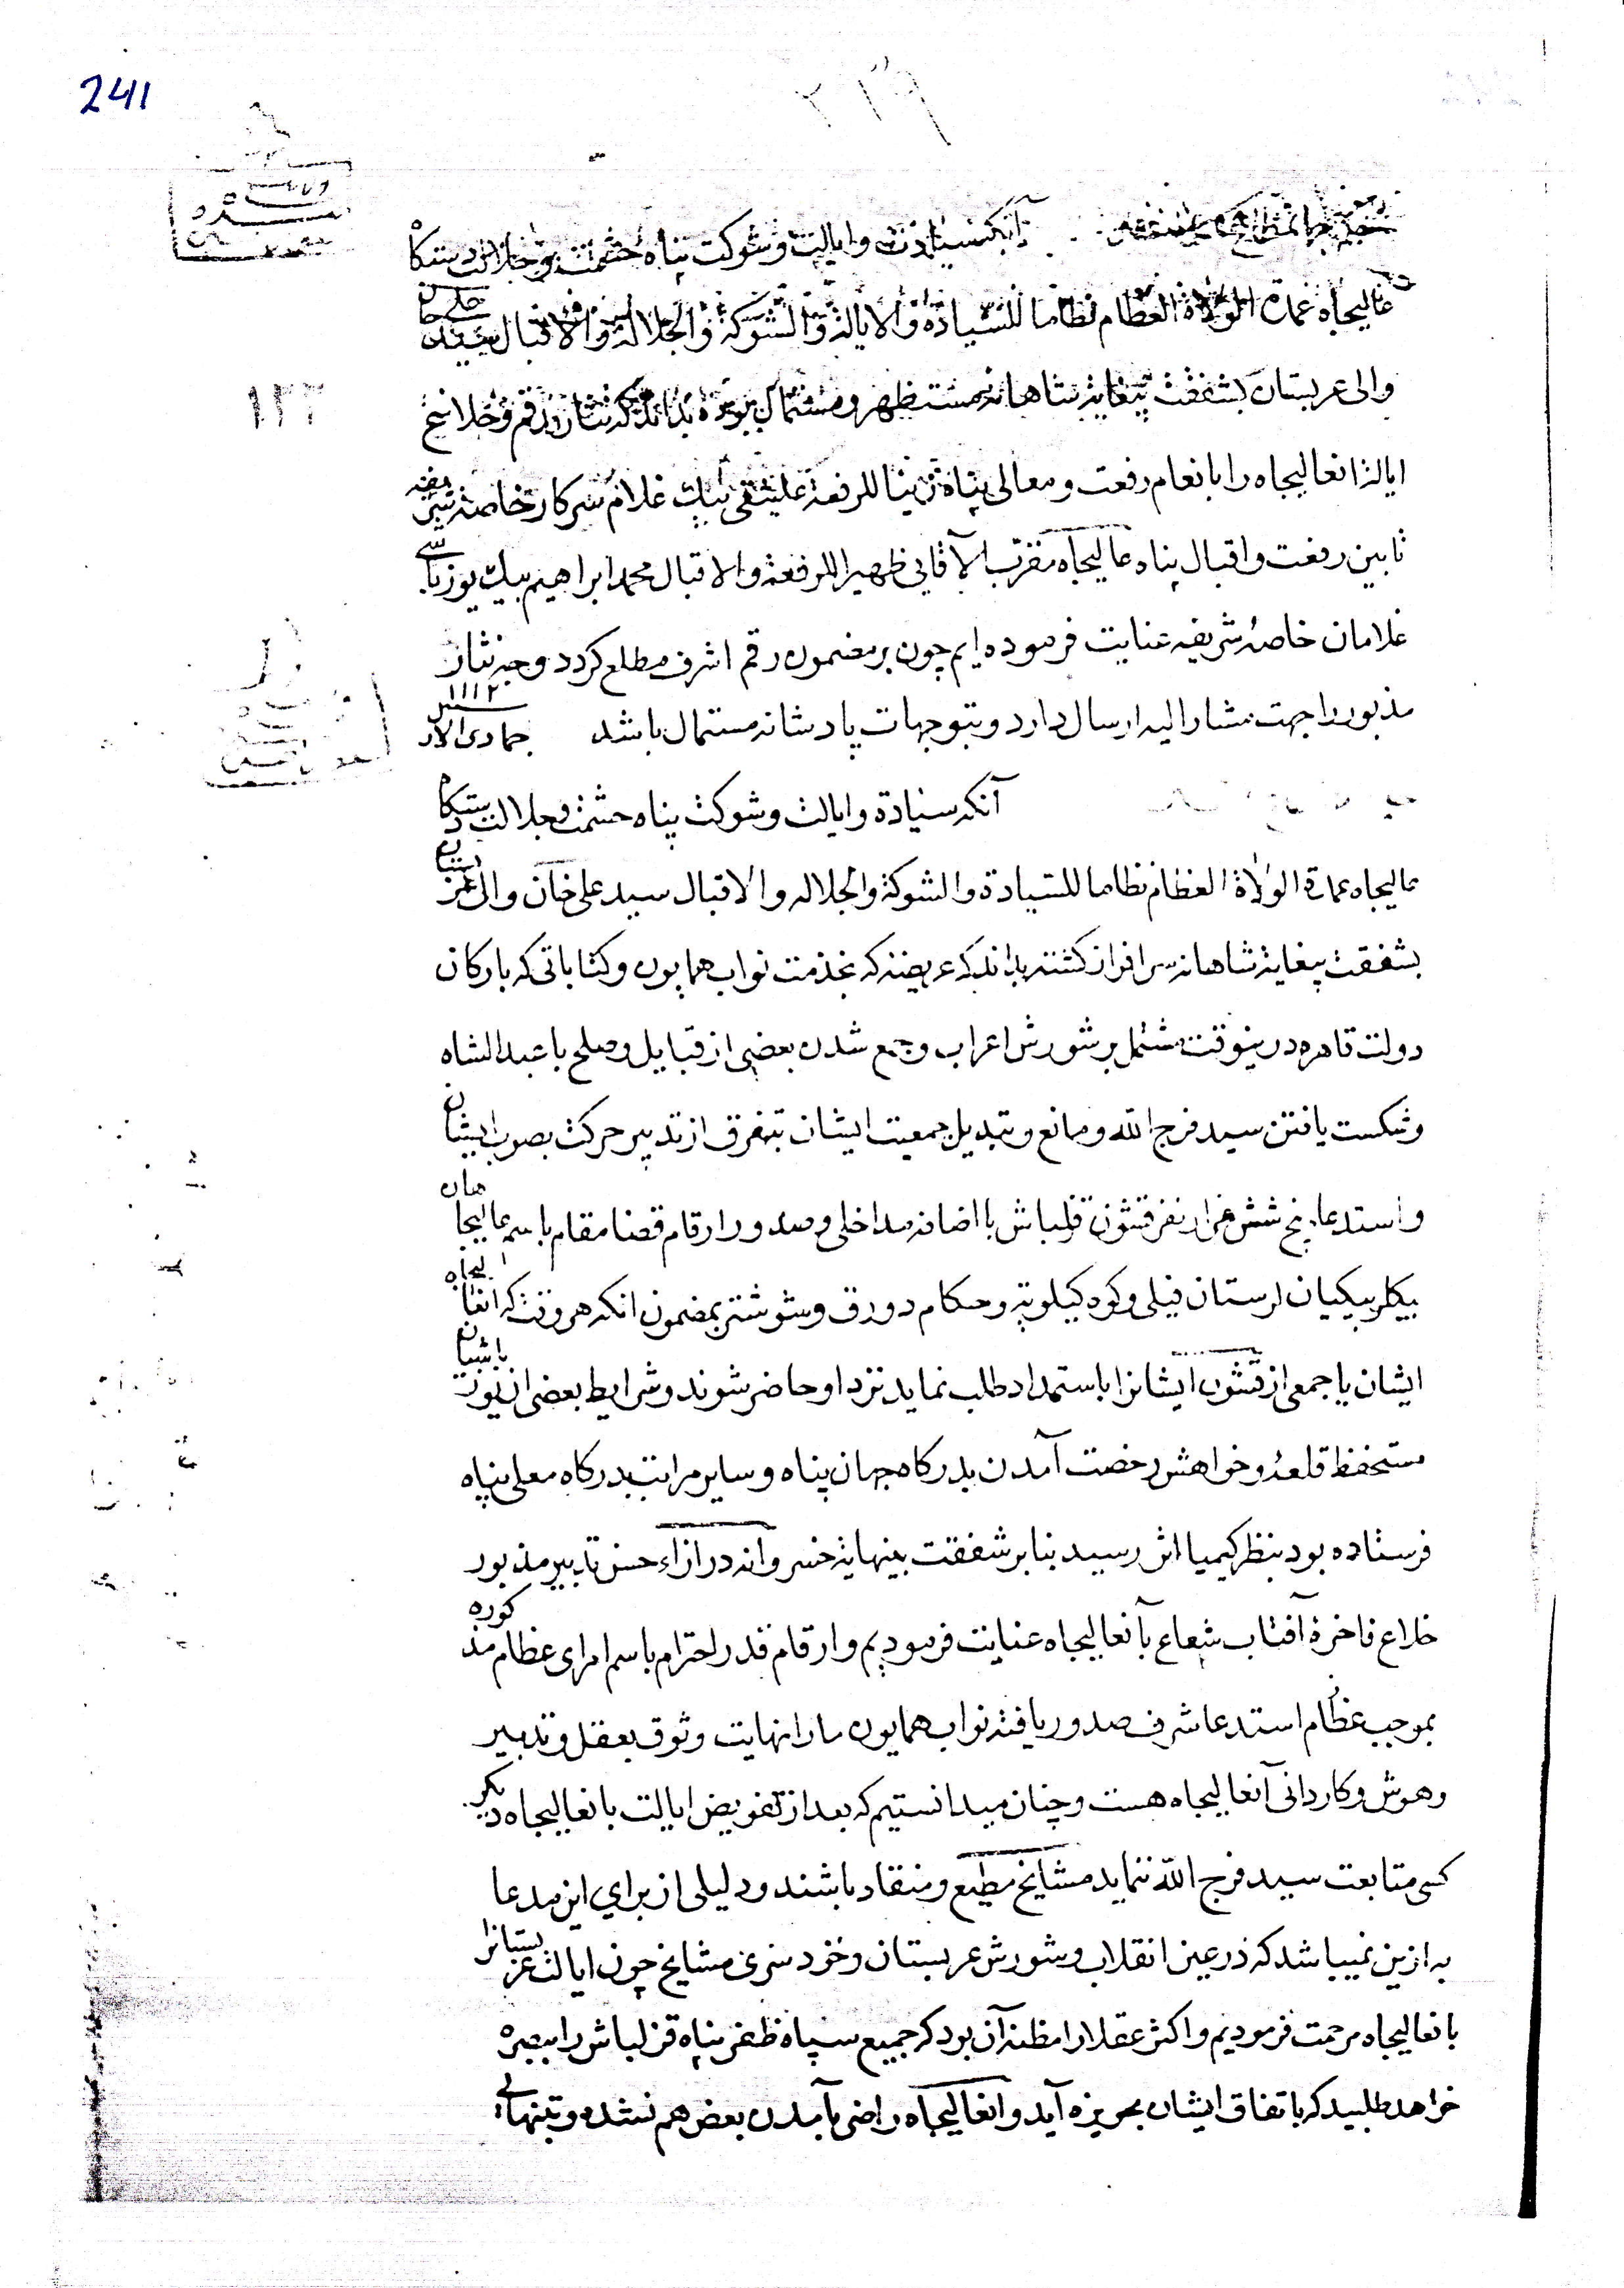 241
۲۱۹
آنکه سیادت و ایالت و شوکت پناه حشمت و جلالت دستکاه
عالیجاه عمدة الولاة العظام نظاما للسیادة والایالة والشوکة والجلالة والاقبال سید علی خان
والی عربستان بشفقت بیغایة شاهانه مستظهر و مستمال بوده بداند که نثار رقم و خلاع
ایالة انعالیجاه را بانعام رفعت و معالی پناه زینا للرفعة علینقی بیك غلام سرکار خاصه شریفه
تابین رفعت و اقبال پناه عالیجاه مقرب الآقانی ظهیرا للرفعة والاقبال محمد ابراهیم بیك یوزباشی
غلامان خاصهٔ شریفه عنایت فرموده ایم چون بر مضمون رقم اشرف مطلع کردد وجه نثار
مذبور را جهت مشارالیه ارسال دارد و بتوجهات پادشانه مستمال باشد جمادی الاول سنه ۱۱۱۲
آنکه سیادة و ایالت و شوکت پناه حشمت و جلالت دستکاه
عالیجاه عمدة الولاة العظام نظاما للسیادة والشوکة والجلالة والاقبال سید علی خان والی عربستان
بشفقت بیغایة شاهانه سرافراز کشته بداند که عریضه که بخدمت نواب همایون و کتاباتی که بارکان
دولت قاهره درینوقت مشتمل بر شورش اعراب و جمع شدن بعضی از قبایل و صلح با عبدالشاه
و شکست یافتن سید فرج الله و مانع و تبدیل جمعیت ایشان بتفرق از تدبیر حرکت بصوب ایشان
و استدعا پنج شش هزار نفر قشون قزلباش با اضافه مداخلی و صدور ارقام قضا مقام باسم عالیجاهان
بیکلربیکیان لرستان فیلی و کوه کیلویه و حکام دورق و شوشتر بمضمون انکه هر وقت که انعالیجاه
ایشان یا جمعی از قشون ایشانرا باستمداد طلب نماید نزد او حاضر شوند و شرایط بعضی از یوزباشیان
مستحفظ قلعهٔ و خواهش رخصت آمدن بدرکاه جهان پناه و سایر مراتب بدرکاه معلی پناه
فرستاده بود بنظر کیمیا اثر رسید بنابر شفقت بینهایة خسروانه در ازاء حسن تدبیر مذبور
خلاع فاخرهٔ آفتاب شعاع بآنعالیجاه عنایت فرمودیم و ارقام قدر احترام باسم امرای عظام مذکوره
بموجب عظام استدعا شرف صدور یافته نواب همایون ما را نهایت وثوق بعقل و تدبیر
و هوش و کاردانی آنعالیجاه هست و چنان میدانستیم که بعد از تفویض ایالت بانعالیجاه دیکر
کسی متابعت سید فرج الله ننماید مشایخ مطیع و منقاد باشند و دلیلی از برای این مدعا
به ازین نمیباشد که در عین انقلاب و شورش عربستان و خودسری مشایخ چون ایالت عربستانرا
بانعالیجاه مرحمت فرمودیم و اکثر عقلا را مظنه آن بود که جمیع سپاه ظفر پناه قزلباش را ببصره
خواهد طلبید که باتفاق ایشان بحویزه آید و انعالیجاه راضی بآمدن بعض هم نشده و بتنهائی